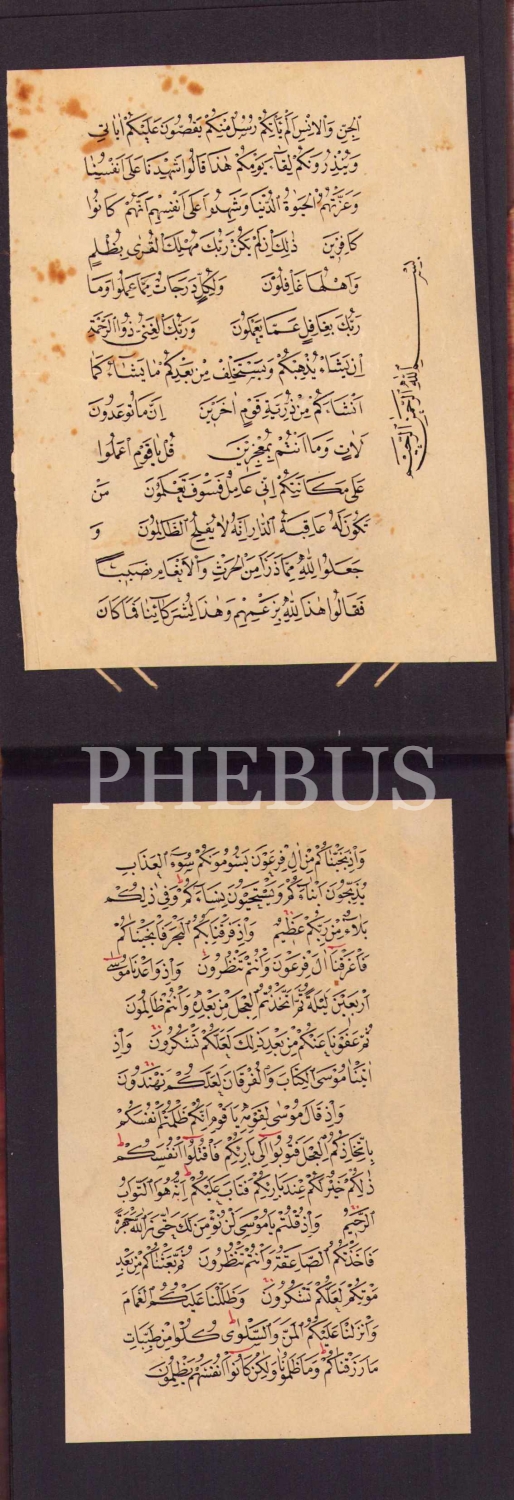 الجن والانس الم يأتكم رسل منكم يقصون عليكم اياتي
وينذرونكم لقاء يومكم هذا قالوا شهدنا على انفسنا
وغرتهم الحيوة الدنيا وشهدوا على انفسهم انهم كانوا
كافرين ذلك ان لم يكن ربك مهلك القرى بظلم
واهلها غافلون ولكل درجات مما عملوا وما
ربك بغافل عما يعملون وربك الغني ذو الرحمة
ان يشاء يذهبكم ويستخلف من بعدكم ما يشاء كما
انشاءكم من ذرية قوم اخرين ان ما توعدون
لات وما انتم بمعجزين قل يا قوم اعملوا
على مكانتكم اني عامل فسوف تعلمون من
تكون له عاقبة الدار انه لا يفلح الظالمون و
جعلوا لله مما ذرا من الحرث والانعام نصيبا
فقالوا هذا لله بزعمهم وهذا لشركائنا فما كان
بسم الله الرحمن الرحيم
PHEBUS
واذ نجيناكم من ال فرعون يسومونكم سوء العذاب
يذبحون ابناءكم ويستحيون نساءكم وفي ذلكم
بلاء من ربكم عظيم واذ فرقنا بكم البحر فانجيناكم
واغرقنا ال فرعون وانتم تنظرون واذ واعدنا موسى
اربعين ليلة ثم اتخذتم العجل من بعده وانتم ظالمون
ثم عفونا عنكم من بعد ذلك لعلكم تشكرون واذ
اتينا موسى الكتاب والفرقان لعلكم تهتدون
واذ قال موسى لقومه يا قوم انكم ظلمتم انفسكم
باتخاذكم العجل فتوبوا الى بارئكم فاقتلوا انفسكم
ذلكم خير لكم عند بارئكم فتاب عليكم انه هو التواب
الرحيم واذ قلتم يا موسى لن نؤمن لك حتى نرى الله جهرة
فاخذتكم الصاعقة وانتم تنظرون ثم بعثناكم من بعد
موتكم لعلكم تشكرون وظللنا عليكم الغمام
وانزلنا عليكم المن والسلوى كلوا من طيبات
ما رزقناكم وما ظلمونا ولكن كانوا انفسهم يظلمون